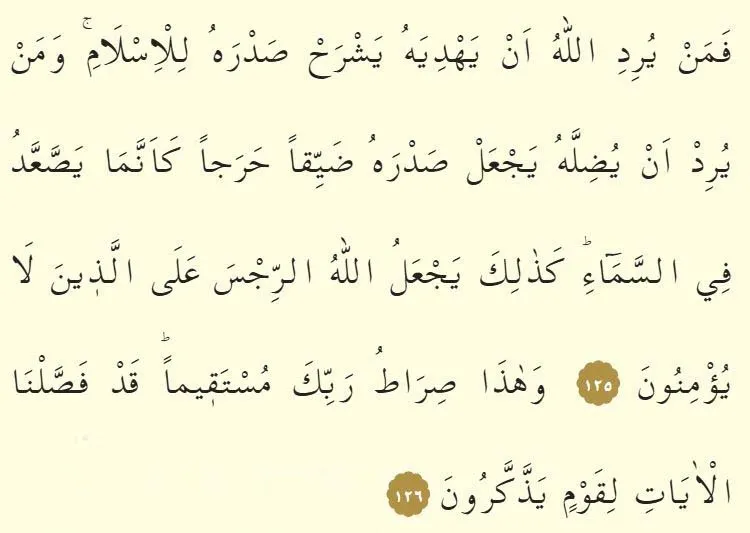 فَمَنْ يُرِدِ اللّٰهُ اَنْ يَهْدِيَهُ يَشْرَحْ صَدْرَهُ لِلْاِسْلَامِۚ وَمَنْ
يُرِدْ اَنْ يُضِلَّهُ يَجْعَلْ صَدْرَهُ ضَيِّقاً حَرَجاً كَاَنَّمَا يَصَّعَّدُ
فِي السَّمَٓاءِۜ كَذٰلِكَ يَجْعَلُ اللّٰهُ الرِّجْسَ عَلَى الَّذ۪ينَ لَا
يُؤْمِنُونَ ١٢٥ وَهٰذَا صِرَاطُ رَبِّكَ مُسْتَق۪يماًۜ قَدْ فَصَّلْنَا
الْاٰيَاتِ لِقَوْمٍ يَذَّكَّرُونَ ١٢٦